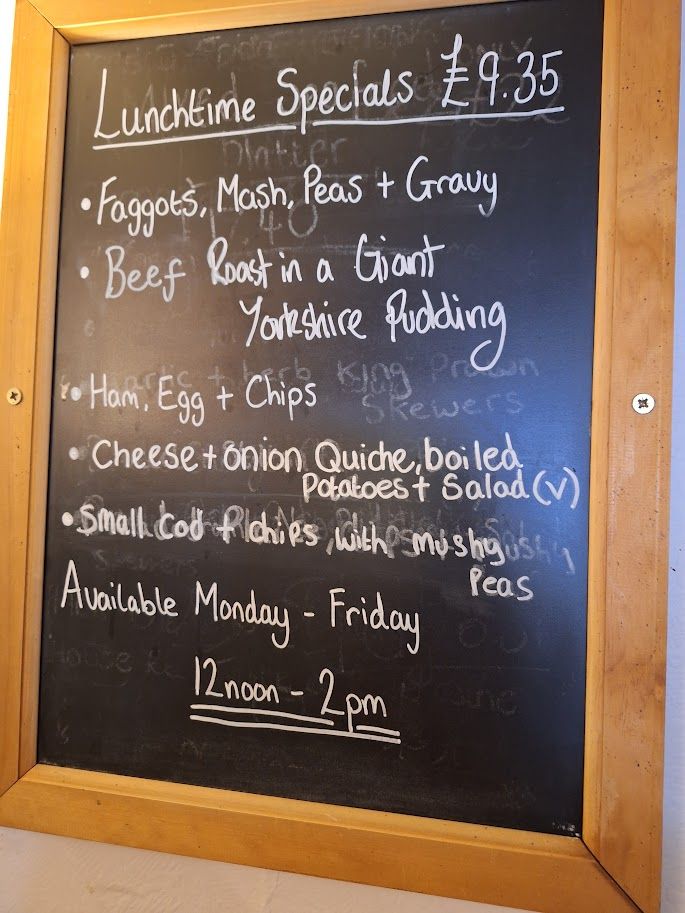 Lunchtime Specials £9.35
• Faggots, Mash, Peas + Gravy
• Beef Roast in a Giant
Yorkshire Pudding
• Ham, Egg + Chips
• Cheese + onion Quiche, boiled
Potatoes + Salad (v)
• Small Cod + chips, with mushy
Peas
Available Monday - Friday
12noon - 2pm
platter
King Prawn
Skewers